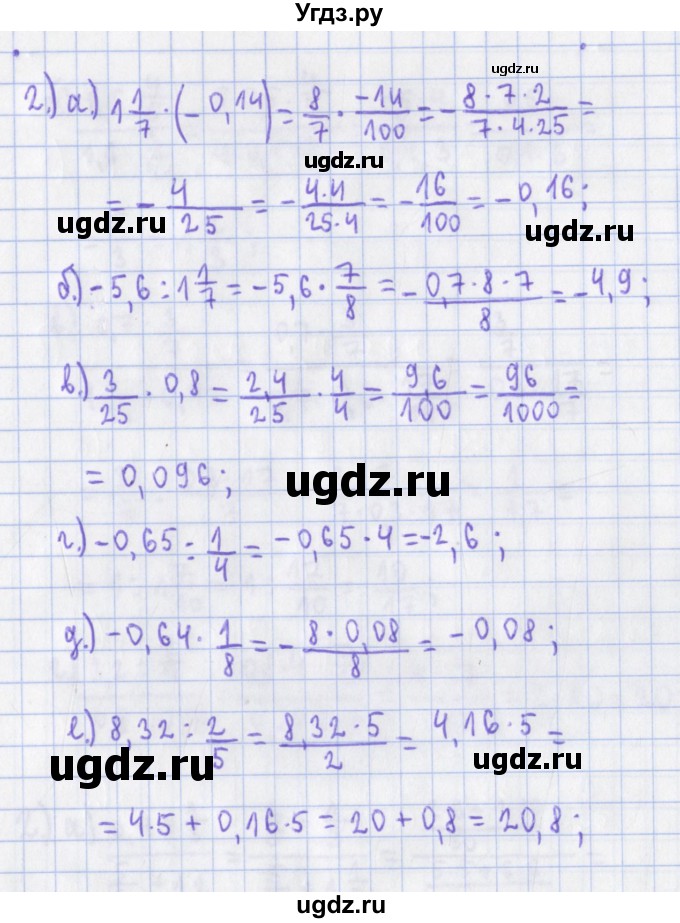 Угдз.ру
ugdz.ru
2.) а.) 1 1/7 · (-0,14) = 8/7 · -14/100 = - 8·7·2/7·4·25 =
ugdz.ru
= - 4/25 = - 4·4/25·4 = - 16/100 = -0,16;
ugdz.ru
ugdz.ru
б.) -5,6 : 1 1/7 = -5,6 · 7/8 = - 0,7·8·7/8 = -4,9;
в.) 3/25 · 0,8 = 2,4/25 · 4/4 = 9,6/100 = 96/1000 =
= 0,096;
ugdz.ru
г.) -0,65 : 1/4 = -0,65·4 = -2,6;
ugdz.ru
д.) -0,64 · 1/8 = - 8·0,08/8 = -0,08;
е.) 8,32 : 2/5 = 8,32·5/2 = 4,16·5 =
ugdz.ru
ugdz.ru
= 4·5 + 0,16·5 = 20 + 0,8 = 20,8;
ugdz.ru